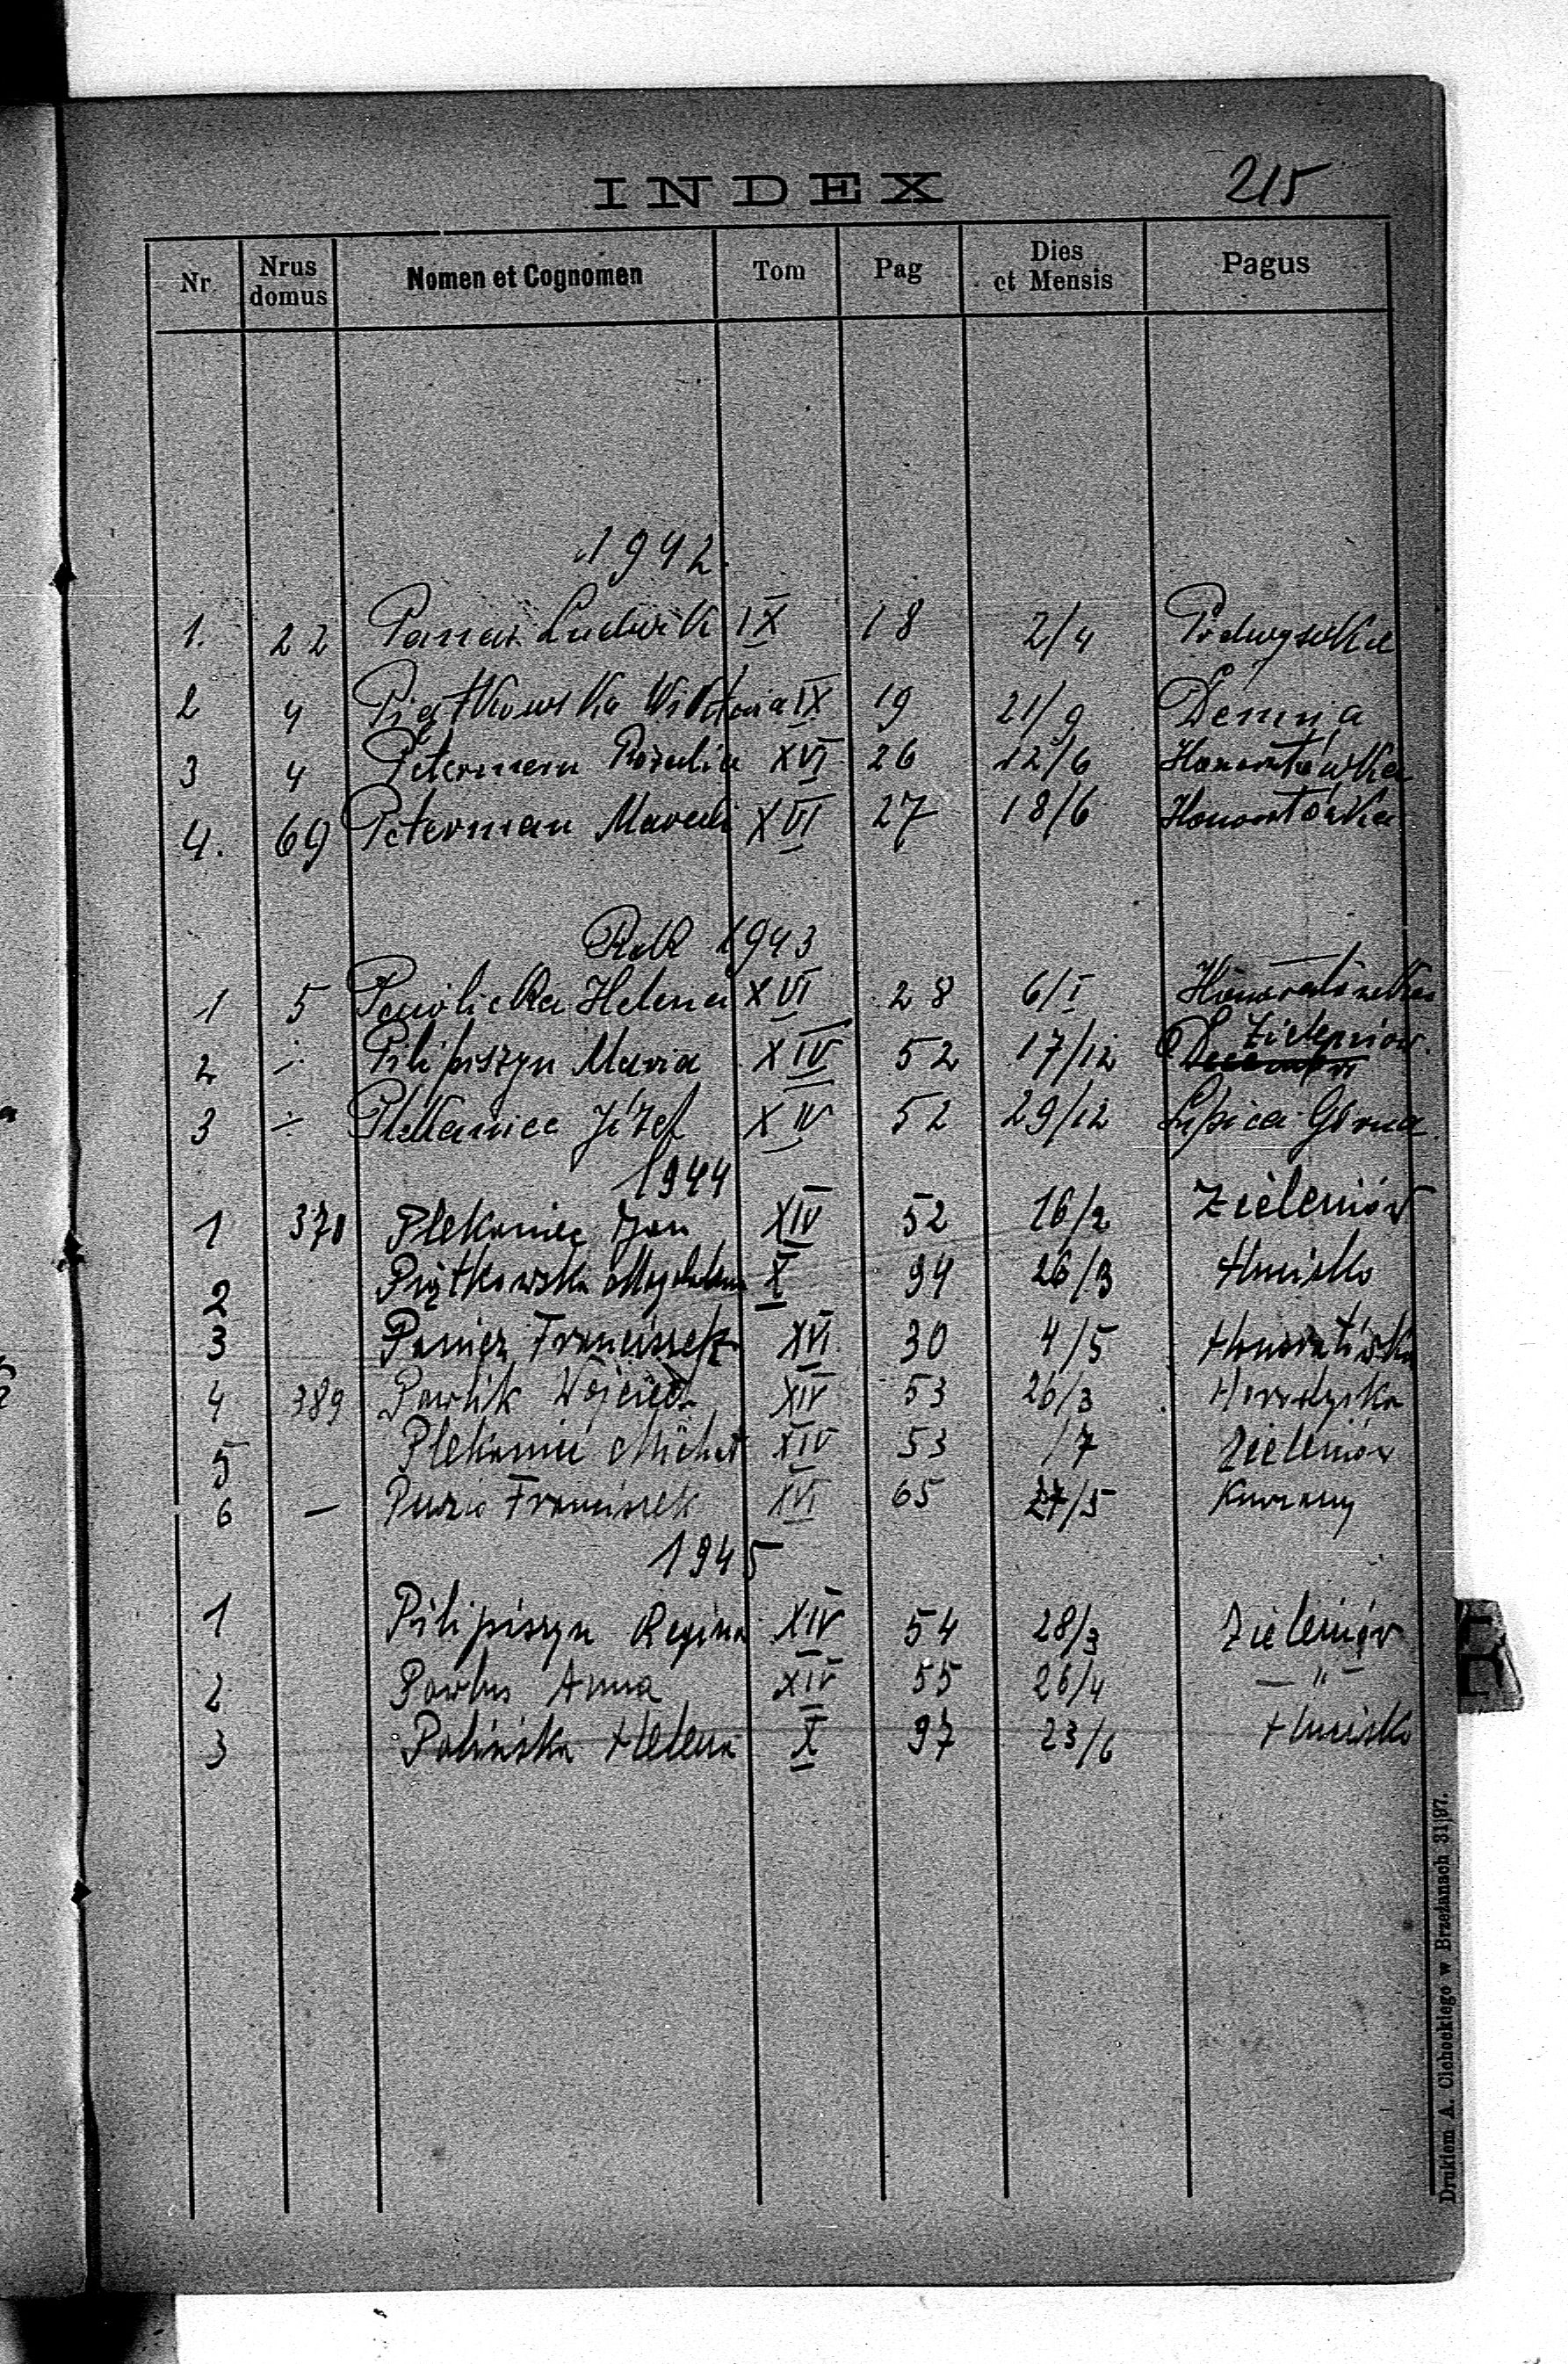 INDEX 215
Nr. Nrus domus Nomen et Cognomen Tom Pag Dies et Mensis Pagus
1942.
1. 22 Panas Ludwik IX 18 2/4 Podwysokie
2 4 Piątkowska Wiktoria IX 19 21/9 Demnia
3 4 Peterman Rozalia XVI 26 12/6 Honoratówka
4. 69 Peterman Marceli XVI 27 18/6 Honoratówka
Rok 1943
1 5 Helena XVI 28 6/I Honoratówka
2 ÷ Pilipiszyn Maria XIV 52 17/12 Zieleniów.
3 ÷ Plekaniec Józef XIV 52 29/12 Lipica Górna
1944
1 370 Plekaniec Jan XIV 52 16/2 Zieleniów
2 Piątkowska Magdalena X 94 26/3 Hucisko
3 Franciszek XVI 30 4/5 Honoratówka
4 389 Pawlik Wojciech XIV 53 26/3
5 Plekaniec Michał XIV 53 /7 Zieleniów
6 — Franciszek XVI 65 27/5 Kurzany
1945
1 Pilipiszyn Regina XIV 54 28/3 Zieleniów
2 Pawlus Anna XIV 55 26/4 — " —
3 Polińska Helena X 97 23/6 Hucisko
Drukiem A. Cichockiego w Brzeżanach 31|97.